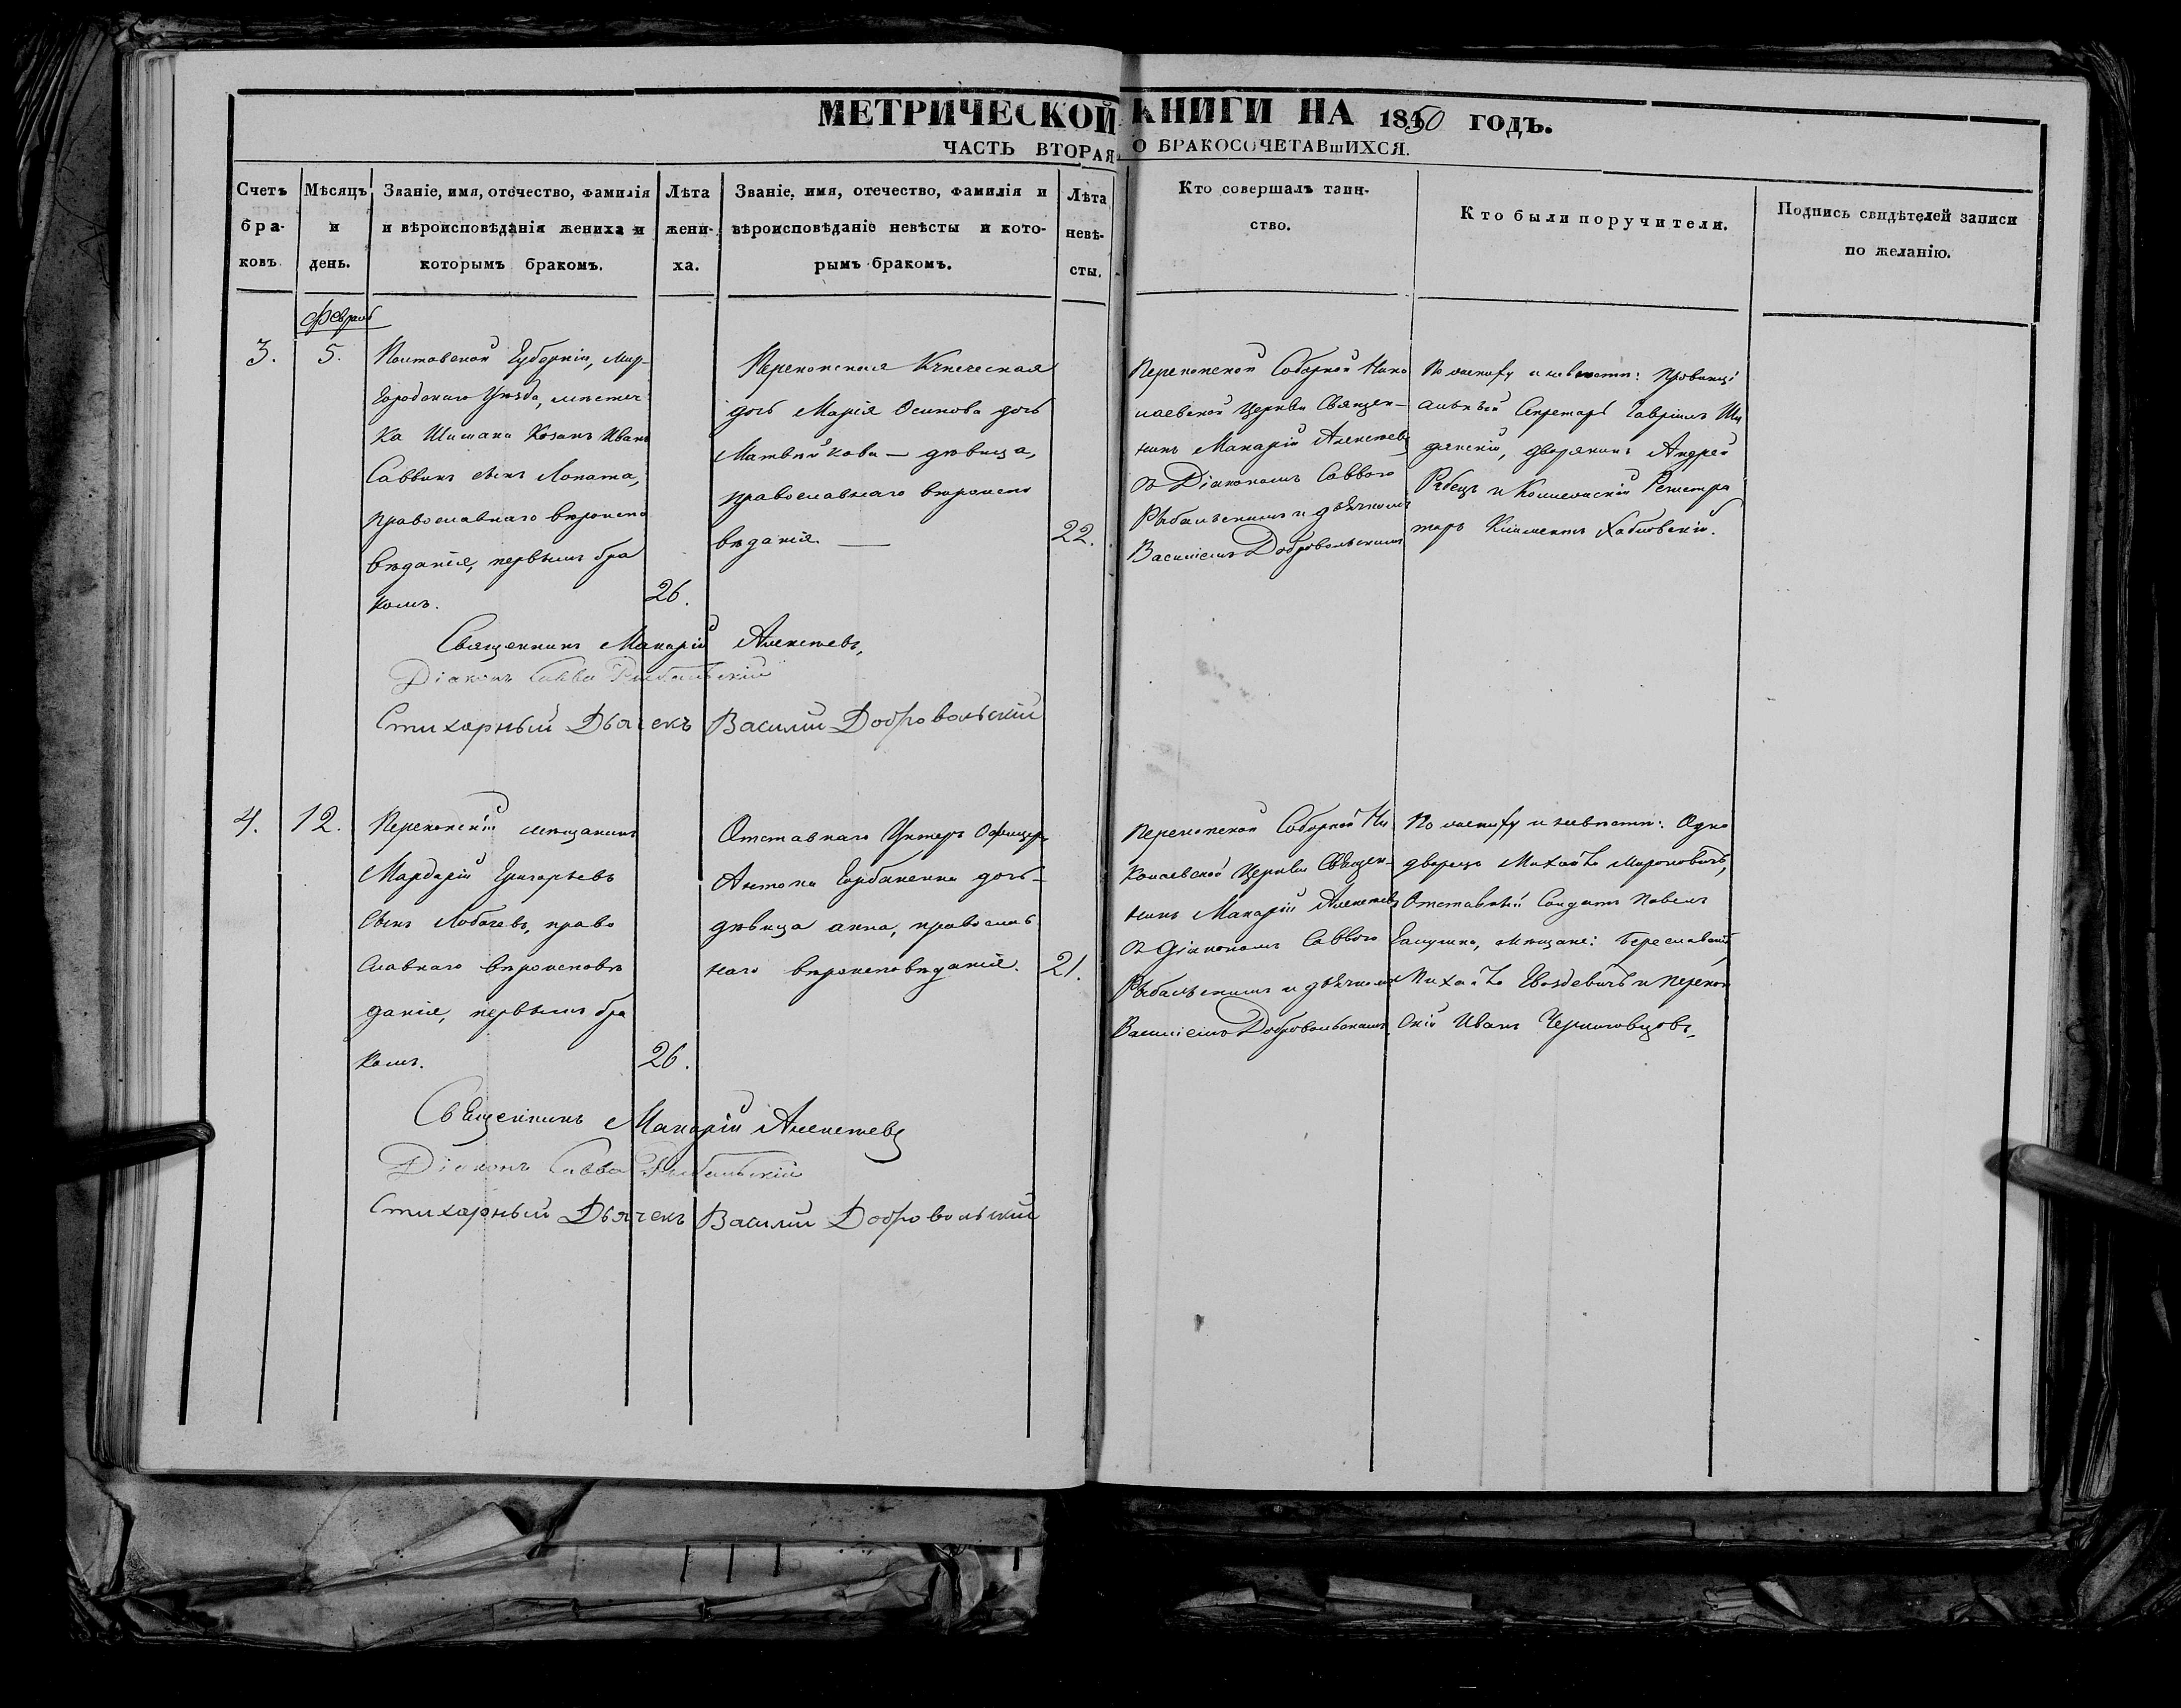 МЕТРИЧЕСКОЙ КНИГИ НА 1850 ГОДЪ.
ЧАСТЬ ВТОРАЯ О БРАКОСОЧЕТАВШИХСЯ.
Счетъ браковъ.
Мѣсяцъ и день.
Званіе, имя, отечество, фамилія
и вѣроисповѣданія жениха и
которымъ бракомъ.
Лѣта
жени-
ха.
Званіе, имя, отечество, фамилія и
вѣроисповѣданіе невѣсты и кото-
рымъ бракомъ.
Лѣта
невѣ-
сты.
Кто совершалъ таин-
ство.
Кто были поручители.
Подпись свидѣтелей записи
по желанію.
Февраль
3.
5.
Полтавской Губерніи, Мир-
городскаго Уѣзда, мѣстеч
ка Шишака Козакъ Иванъ
Саввинъ сынъ Лопата,
православнаго вѣроиспо
вѣданія, первымъ бра
комъ.
26.
Перекопская Купеческая
дочь Марія Осипова дочь
Матвѣйкова — дѣвица,
православнаго вѣроиспо
вѣданія. —
22.
Перекопской Соборной Нико
лаевской Церкви Священ-
никъ Макарій Алексѣевъ
съ Діакономъ Саввою
Рыбальскимъ и дьячкомъ
Василіемъ Добровольскимъ
По жениху и невѣстѣ: Провинці
альный Секретарь Гавріилъ
дворянинъ Андрей
Рябецъ и Коллежскій Регистра
торъ Климентъ
Священникъ Макарій Алексѣевъ,
Діаконъ Савва Рыбальскій
Стихарный Дьячекъ Василій Добровольскій
4.
12.
Перекопскій мѣщанинъ
Мардарій Григорьевъ
Сынъ Лобачевъ, право
славнаго вѣроисповѣ
данія, первымъ бра
комъ.
26.
Отставнаго Унтеръ Офицера
Антона Горбаненка дочь-
дѣвица Анна, православ
наго вѣроисповѣданія.
21.
Перекопской Соборной Ни
колаевской Церкви Священ-
никъ Макарій Алексѣевъ
съ Діакономъ Саввою
Рыбальскимъ и дьячкомъ
Василіемъ Добровольскимъ.
По жениху и невѣстѣ: Одно
дворецъ Михайло Мироновичъ,
Отставный Солдатъ Павелъ
Галушка, мѣщане: Береславскій
Михайло Гвоздевичъ и Перекоп
скій Иванъ Черниговцовъ.
Священникъ Макарій Алексѣевъ
Діаконъ Савва Рыбальскій
Стихарный Дьячекъ Василій Добровольскій